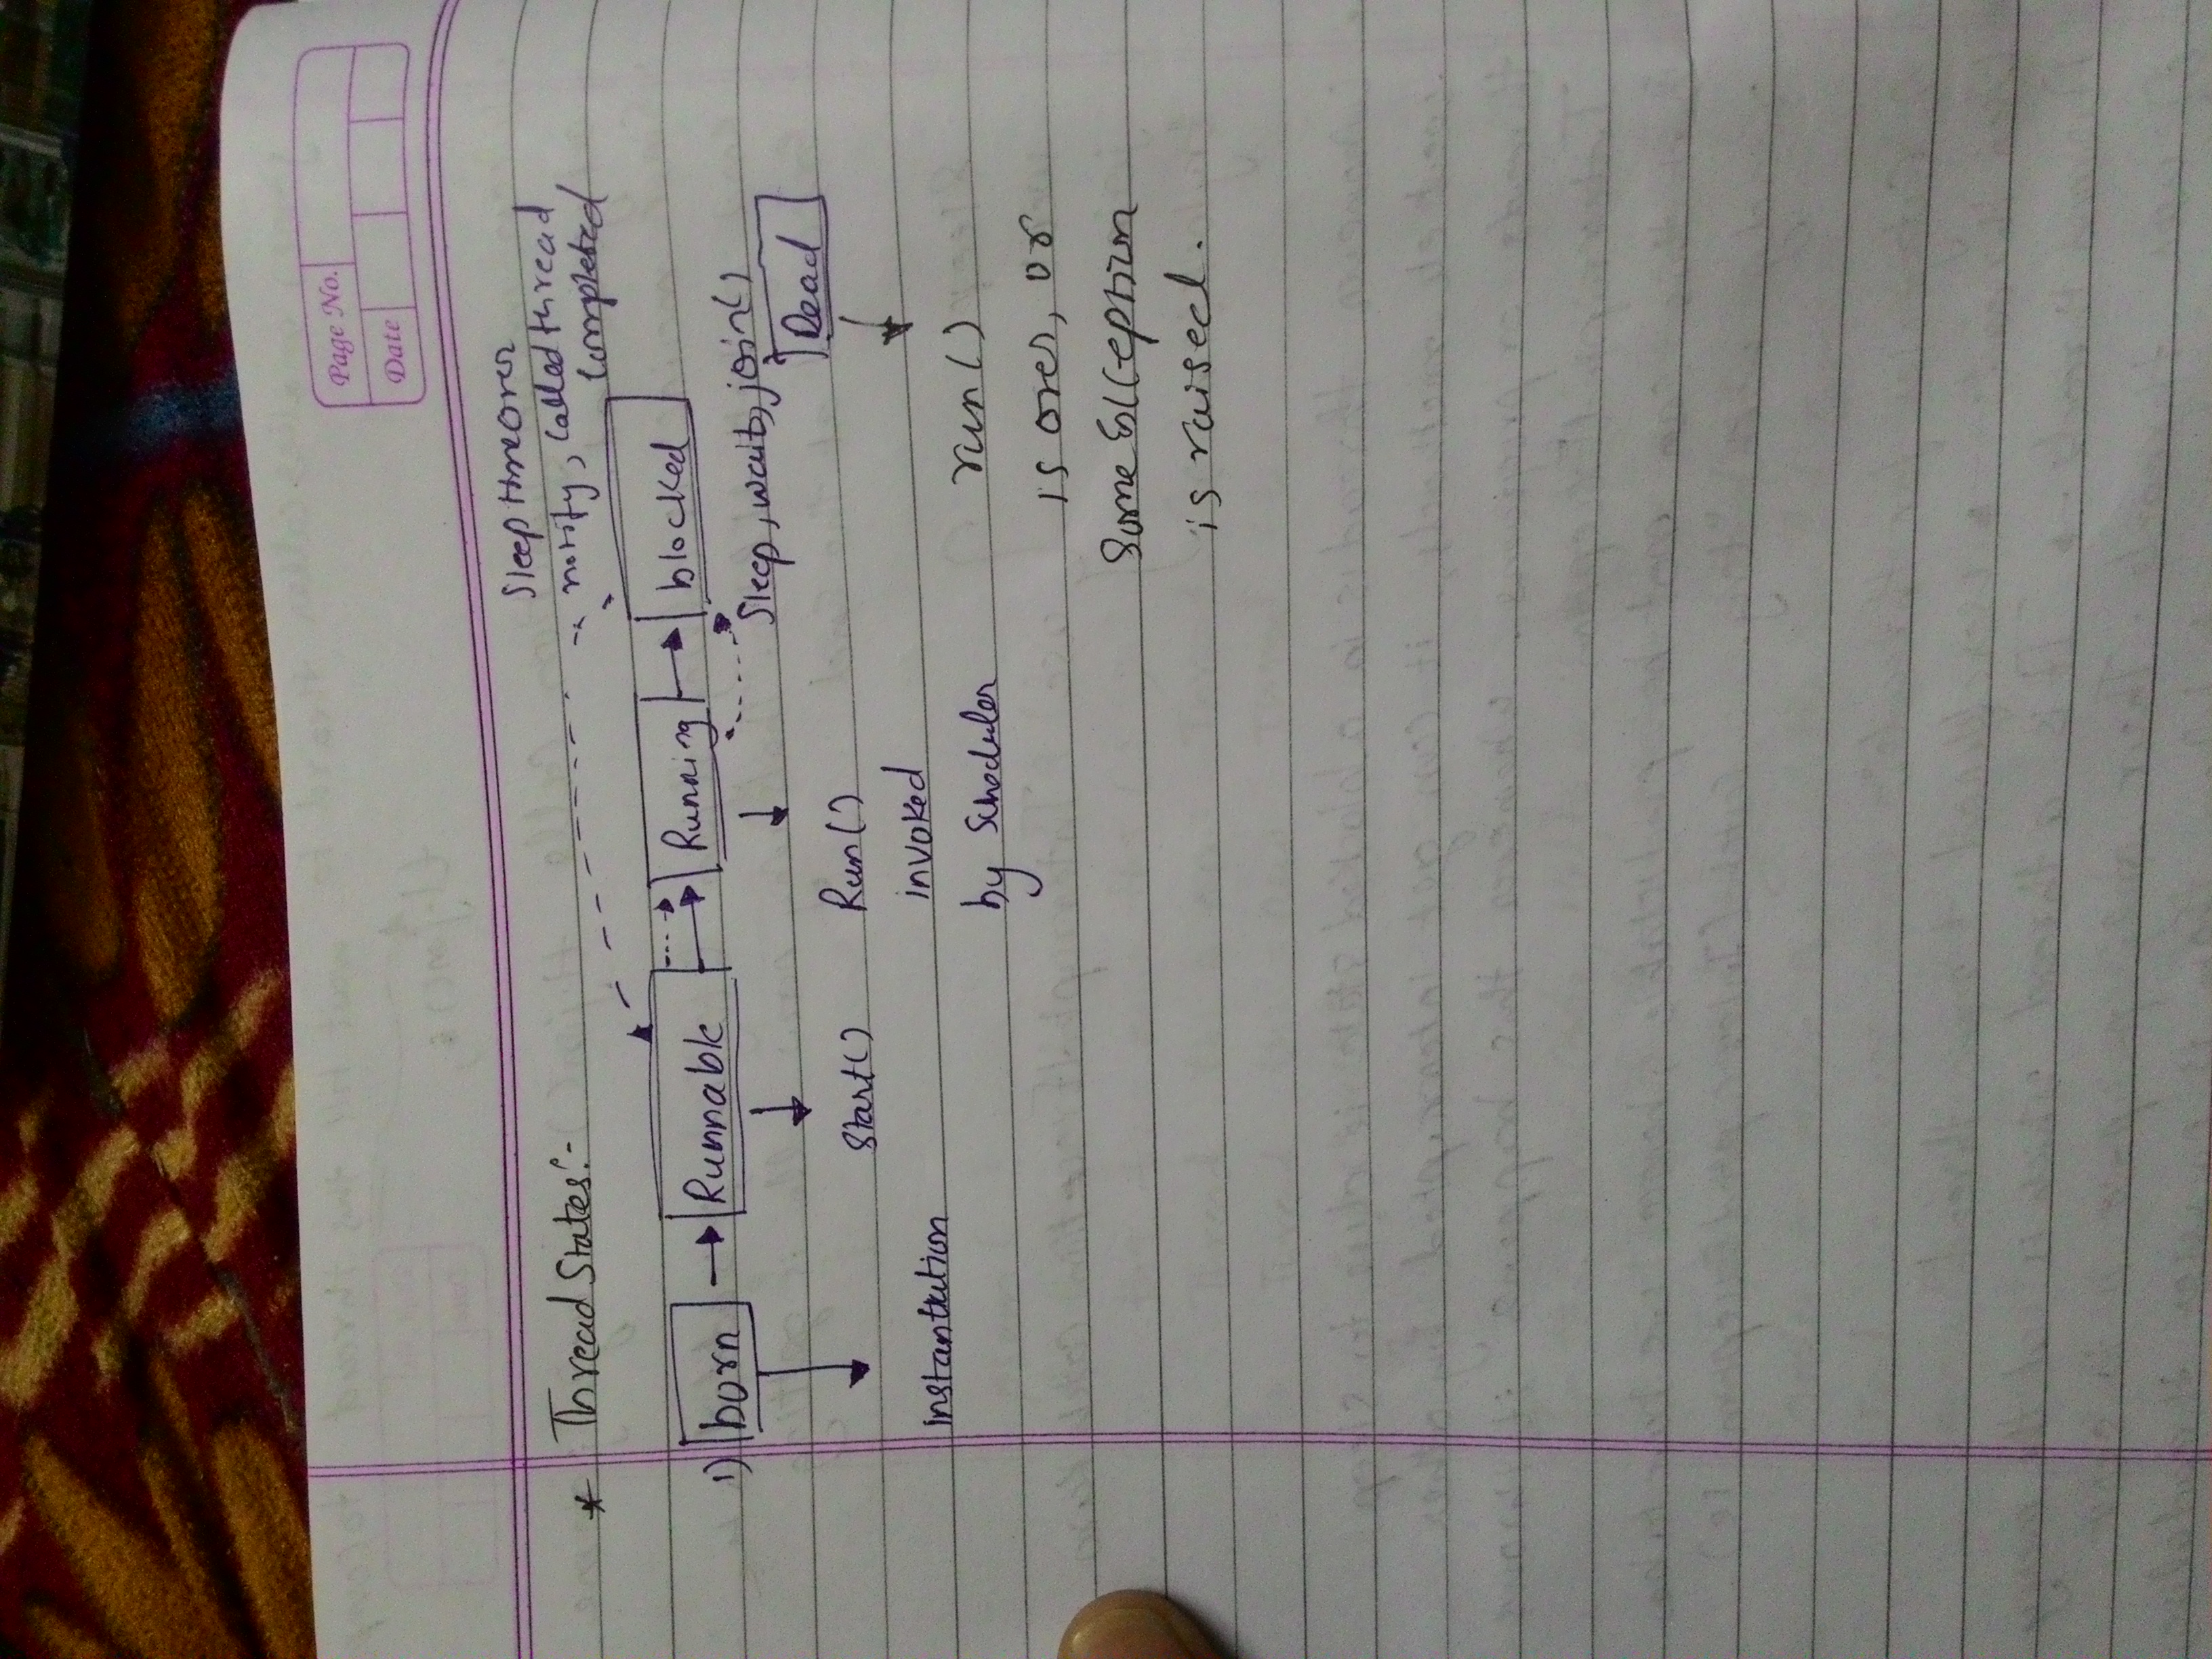 Page No.
Date
* Thread States:-
Sleep time over
notify, called thread
completed
1) born Runnable Running blocked
Sleep, wait, join()
Dead
Start()
Run()
invoked
by Scheduler
run()
is over, or
Some Exception
is raised.